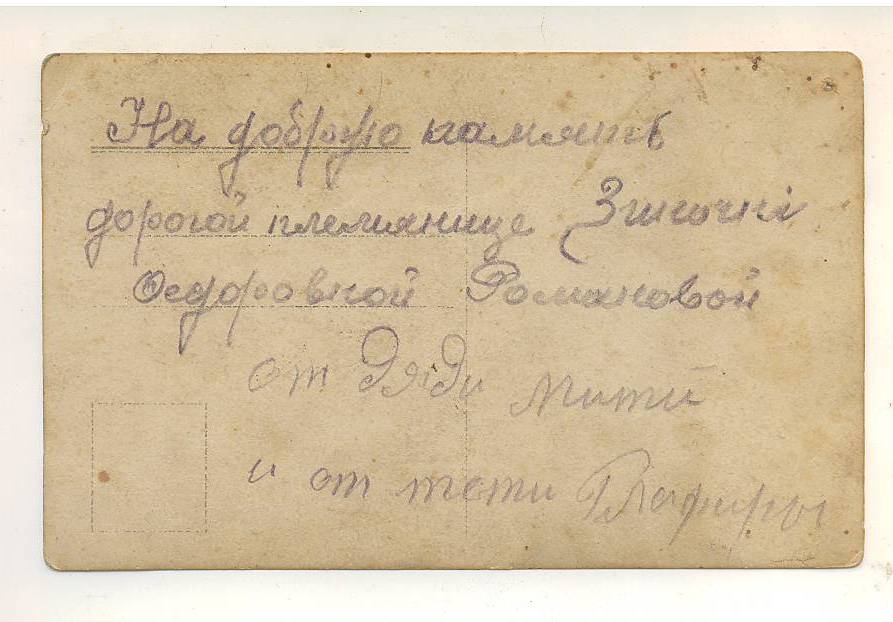 На добрую память
дорогой племянице Зиночки
Ѳедоровной Романовой
от дяди Мити
и от тети Глафиры